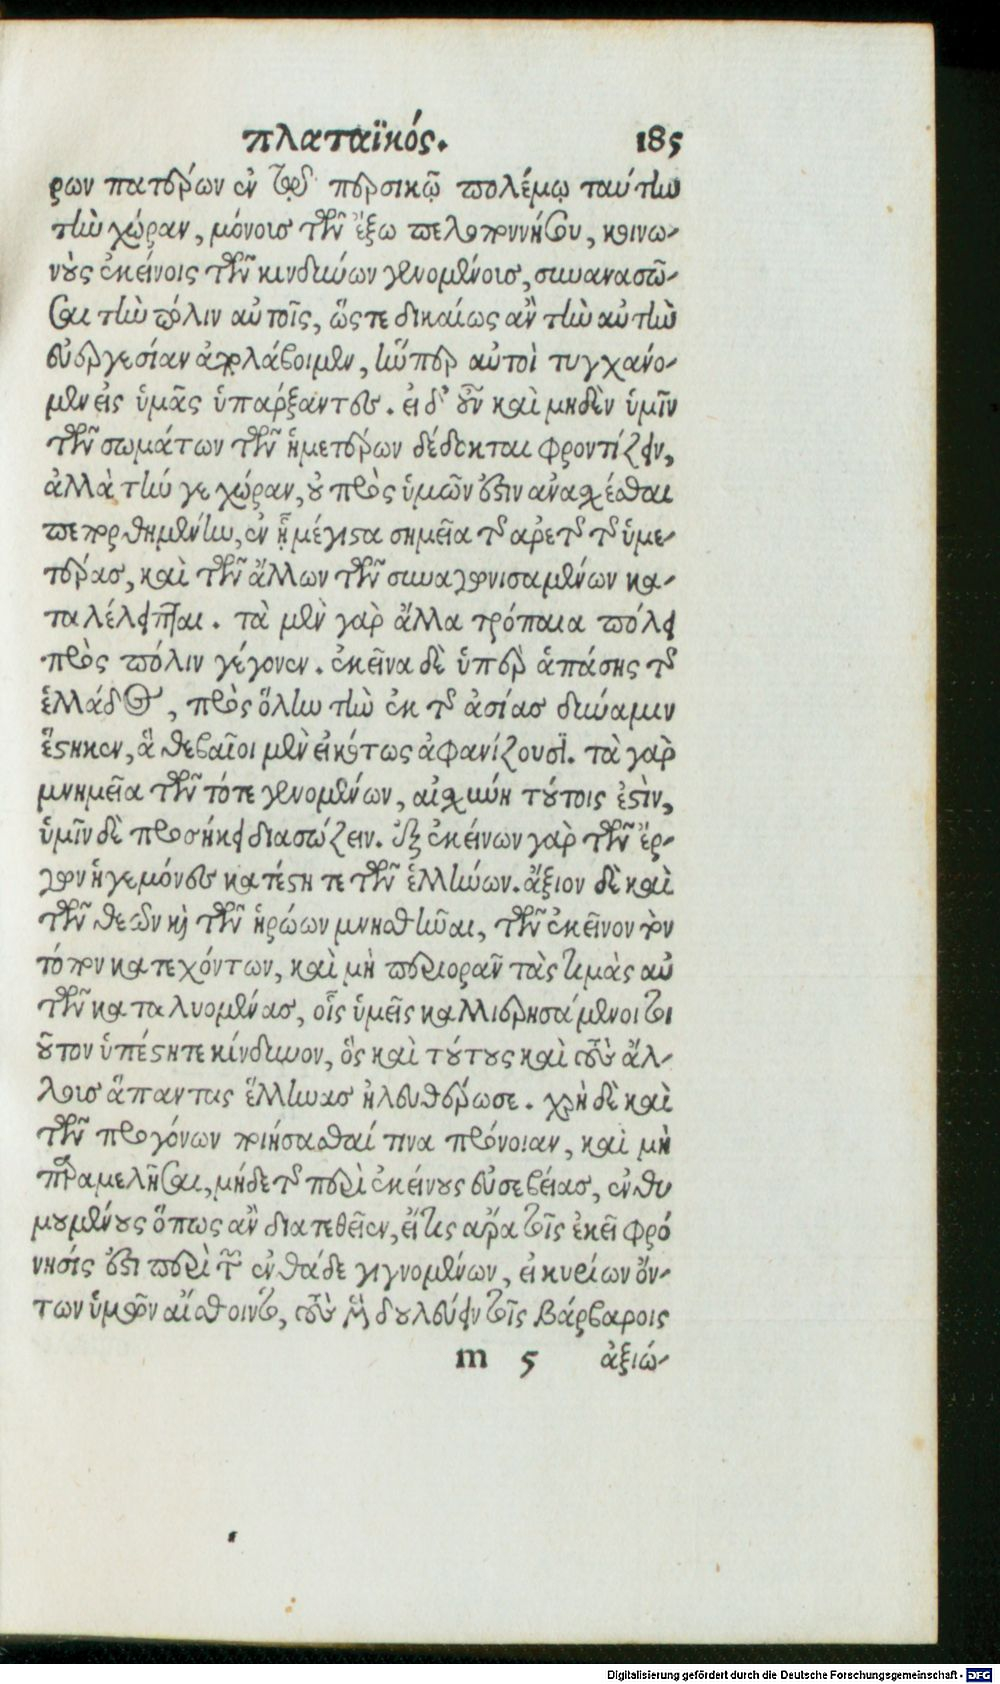 πλαταϊκός. 185
ρων πατέρων ἐν τῷ περσικῷ πολέμῳ ταύτην
τὴν χώραν, μόνοις τῶν ἔξω πελοποννήσου, κοινω-
νοὺς ἐκείνοις τῶν κινδύνων γενομένοις, συνανασῶ-
σαι τὴν πόλιν αὐτοῖς, ὥστε δικαίως ἂν τὴν αὐτὴν
εὐεργεσίαν ἀπολάβοιμεν, ἥνπερ αὐτοὶ τυγχάνο-
μεν εἰς ὑμᾶς ὑπάρξαντες. εἰ δ' οὖν καὶ μηδὲν ὑμῖν
τῶν σωμάτων τῶν ἡμετέρων δέδεκται φροντίζειν,
ἀλλὰ τήν γε χώραν, οὐ πρὸς ὑμῶν ἐστιν ἀνασχέσθαι
πεπορθημένην, ἐν ᾗ μέγιστα σημεῖα τῆς ἀρετῆς τῆς ὑμε-
τέρας, καὶ τῶν ἄλλων τῶν συναγωνισαμένων κα-
ταλέλειπται. τὰ μὲν γὰρ ἄλλα τρόπαια πόλει
πρὸς πόλιν γέγονεν. ἐκεῖνα δὲ ὑπὲρ ἁπάσης τῆς
ἑλλάδος, πρὸς ὅλην τὴν ἐκ τῆς ἀσίας δύναμιν
ἕστηκεν, ἃ θεβαῖοι μὲν εἰκότως ἀφανίζουσι. τὰ γὰρ
μνημεῖα τῶν τότε γενομένων, αἰσχύνη τούτοις ἐστὶν,
ὑμῖν δὲ προσήκει διασώζειν. ἐξ ἐκείνων γὰρ τῶν ἔρ-
γων ἡγεμόνες κατέστητε τῶν ἑλλήνων. ἄξιον δὲ καὶ
τῶν θεῶν καὶ τῶν ἡρώων μνησθῆναι, τῶν ἐκεῖνον τὸν
τόπον κατεχόντων, καὶ μὴ περιορᾶν τὰς τιμὰς αὐ
τῶν καταλυομένας, οἷς ὑμεῖς καλλιερησάμενοι τοι
οῦτον ὑπέστητε κίνδυνον, ὃς καὶ τούτους καὶ τοὺς ἄλ-
λους ἅπαντας ἕλληνας ἠλευθέρωσε. χρὴ δὲ καὶ
τῶν προγόνων ποιήσασθαί τινα πρόνοιαν, καὶ μὴ
παραμελῆσαι, μήδε τῆς περὶ ἐκείνους εὐσεβείας, ἐνθυ
μουμένους ὅπως ἂν διατεθεῖεν, εἴ τις ἄρα τοῖς ἐκεῖ φρό
νησίς ἐστι περὶ τῶν ἐνθάδε γιγνομένων, εἰ κυρίων ὄν-
των ὑμῶν αἴσθοιντο, τοὺς μὲν δουλεύειν τοῖς βάρβαροις
m 5 ἀξιώ-
Digitalisierung gefördert durch die Deutsche Forschungsgemeinschaft - DFG